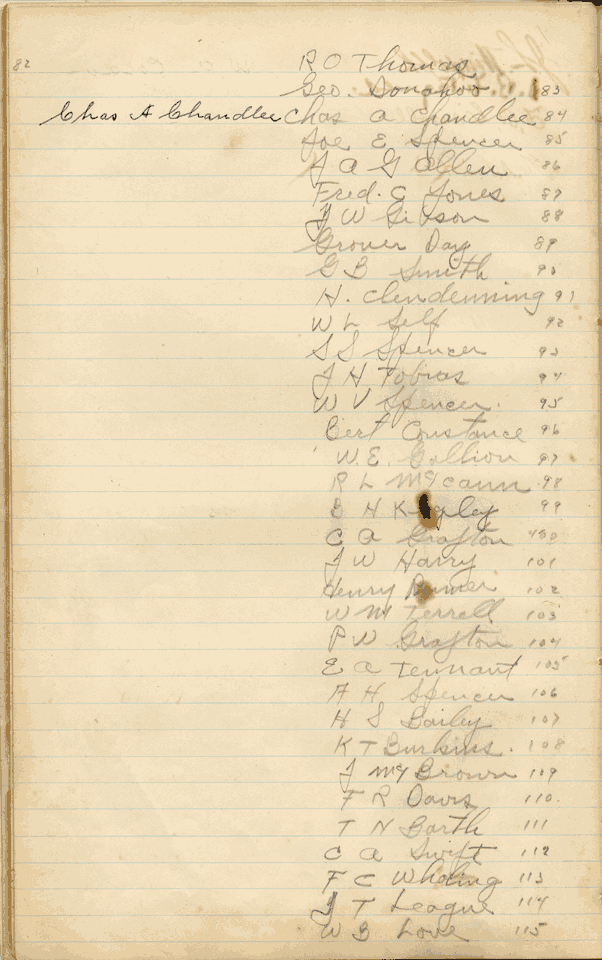 82 R O Thomas
Geo. Donahoo 83
Chas A Chandlee Chas A Chandlee 84
Joe E Spencer 85
J A G Allen 86
Fred. C Jones 87
J W Gibson 88
Grover Day 89
G B Smith 90
H. Clendenning 91
W L Self 92
S S Spencer 93
J H Tobias 94
W V Spencer. 95
Bert Constance 96
W. E. Gullion 97
R L McCann 98
B H 99
C A Grafton 100
J W Harry 101
Henry 102
W M Terrell 103
P W Grafton 104
E A Tennant 105
A H Spencer 106
H S Bailey 107
K T Burkins. 108
J Mc Brown 119
F R Davis 110.
T N Barth 111
C A Swift 112
F C Whaling 113
J T League 114
W B Love 115